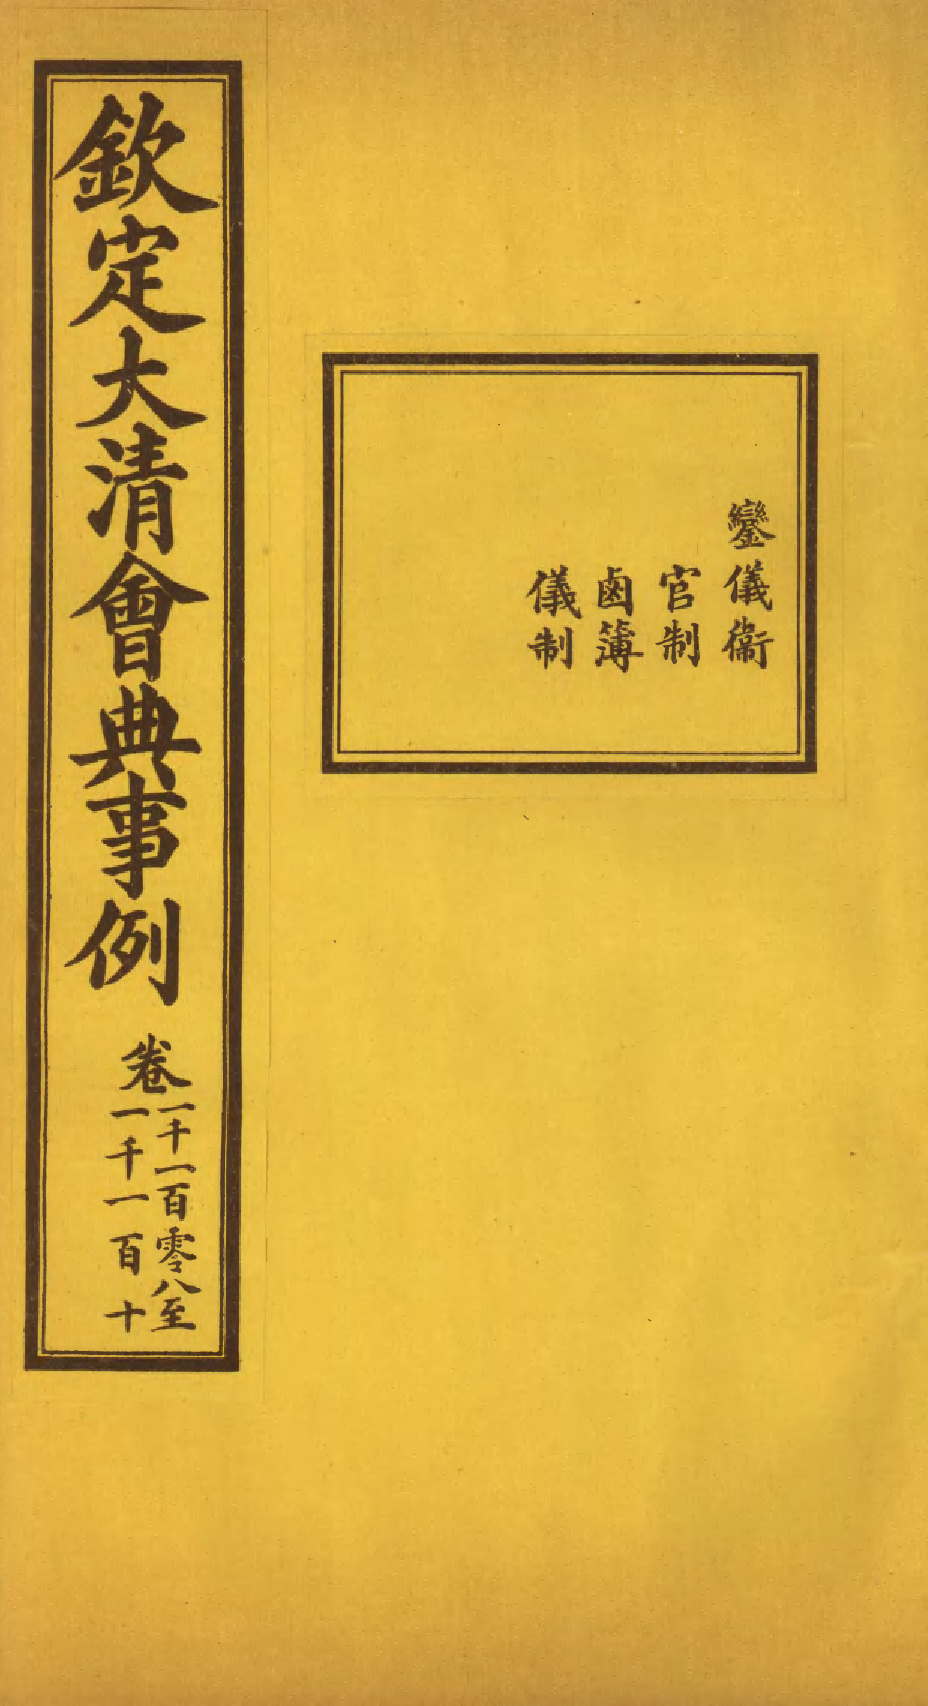 欽定大清會典事例
卷一千一百零八至
一千一百十
鑾儀衞
官制
鹵簿
儀制